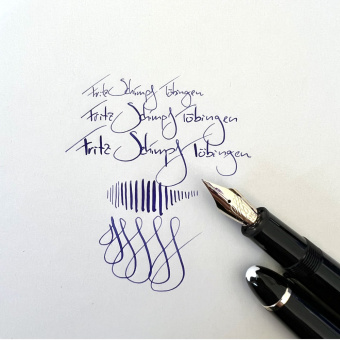 Fritz Schimpf Tübingen
Fritz Schimpf Tübingen
Fritz Schimpf Tübingen